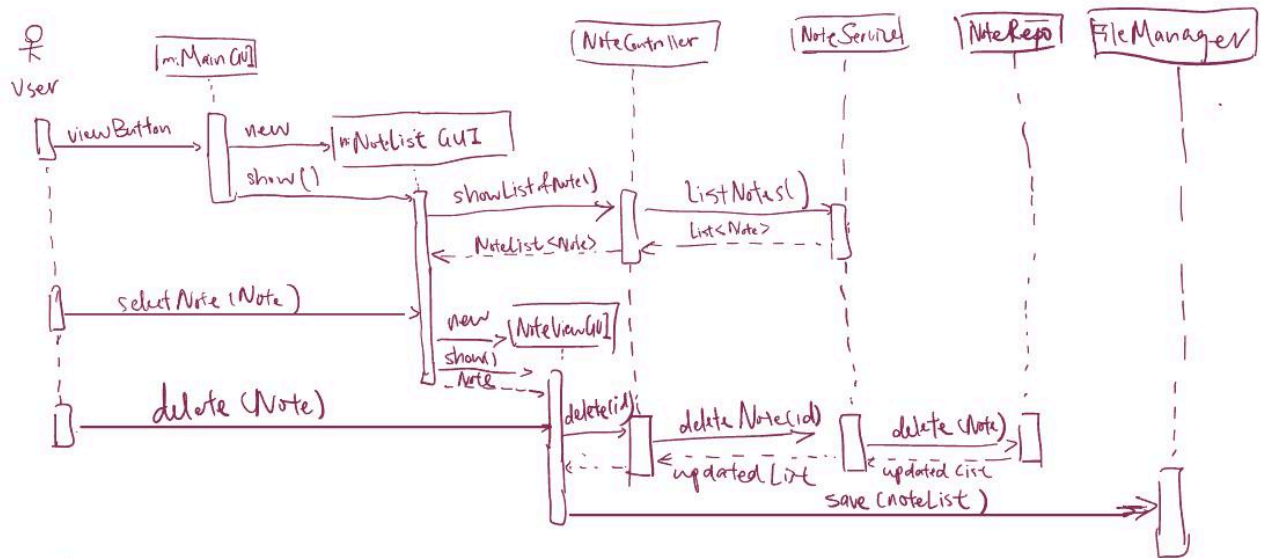 User
m:MainGUI
NoteController
NoteService
NoteRepo
FileManager
viewButton
new
m:NoteList GUI
show()
showListofNote()
ListNotes()
NoteList<Note>
List<Note>
selectNote(Note)
new
NoteViewGUI
show()
Note
delete(Note)
delete(id)
deleteNote(id)
delete(Note)
updated List
updated List
save(noteList)